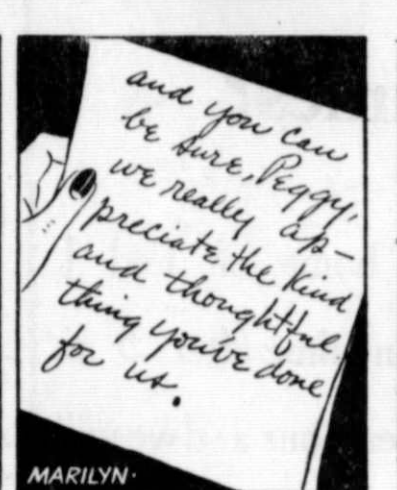 and you can
be sure, Peggy,
we really ap-
preciate the kind
and thoughtful
thing you've done
for us.
MARILYN.